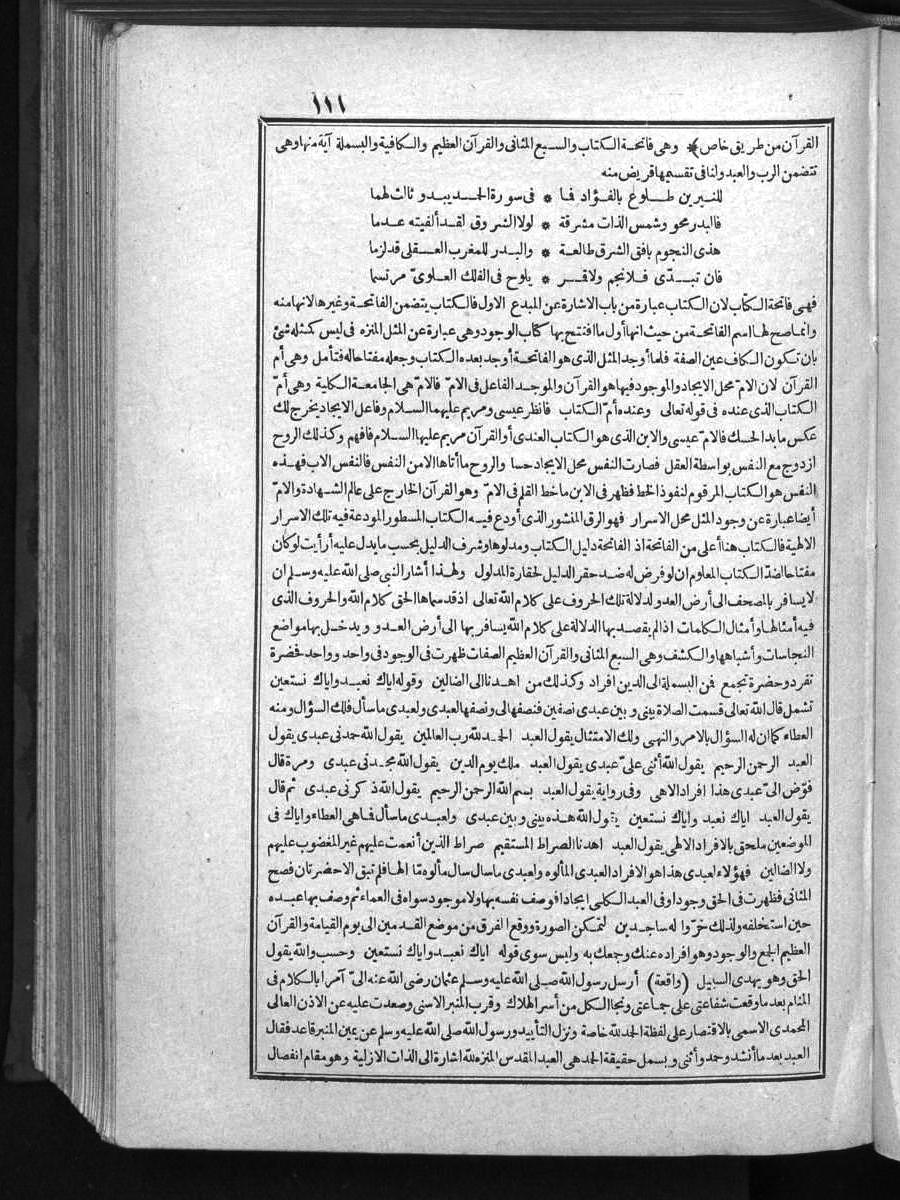 ١١١
القرآن من طريق خاص﴾ وهى فاتحة الكتاب والسبع المثانى والقرآن العظيم والكافية والبسملة آية منها وهى
تتضمن الرب والعبد ولنا فى تقسيمها قريض منه
للنيرين طلوع بالفؤاد فما * فى سورة الحمد يبدو ثالث لهما
فالبدر محو وشمس الذات مشرقة * لولا الشروق لقد ألفيته عدما
هذى النجوم بافق الشرق طالعة * والبدر للمغرب العقلى قد لزما
فان تبدّى فلا نجم ولا قمر * يلوح فى الفلك العلوىّ مرتسما
فهى فاتحة الكتاب لان الكتاب عبارة من باب الاشارة عن المبدع الاول فالكتاب يتضمن الفاتحة وغيرها لانها منه
وانما صح لها اسم الفاتحة من حيث انها أول ما افتتح بها كتاب الوجود وهى عبارة عن المثل المنزه فى ليس كمثله شئ
بان تكون الكاف عين الصفة فلما أوجد المثل الذى هو الفاتحة أوجد بعده الكتاب وجعله مفتاحا له فتأمل وهى أم
القرآن لان الامّ محل الايجاد والموجود فيها هو القرآن والموجد الفاعل فى الامّ فالامّ هى الجامعة الكلية وهى أمّ
الكتاب الذى عنده فى قوله تعالى وعنده أمّ الكتاب فانظر عيسى ومريم عليهما السلام وفاعل الايجاد يخرج لك
عكس ما بدا لحسك فالامّ عيسى والابن الذى هو الكتاب العندى أو القرآن مريم عليها السلام فافهم وكذلك الروح
ازدوج مع النفس بواسطة العقل فصارت النفس محل الايجاد حسا والروح ما أتاها الا من النفس فالنفس الاب فهذه
النفس هو الكتاب المرقوم لنفوذ الخط فظهر فى الابن ما خط القلم فى الامّ وهو القرآن الخارج على عالم الشهادة والامّ
أيضا عبارة عن وجود المثل محل الاسرار فهو الرق المنشور الذى أودع فيه الكتاب المسطور المودعة فيه تلك الاسرار
الالهية فالكتاب هنا أعلى من الفاتحة اذ الفاتحة دليل الكتاب ومدلولها وشرف الدليل بحسب ما يدل عليه أرأيت لو كان
مفتاحا لضدّ الكتاب المعلوم ان لو فرض له ضد حقر الدليل لحقارة المدلول ولهذا أشار النبى صلى الله عليه وسلم ان
لا يسافر بالمصحف الى أرض العدو لدلالة تلك الحروف على كلام الله تعالى اذ قد سماها الحق كلام الله والحروف الذى
فيه أمثالها وأمثال الكلمات اذا لم يقصد بها الدلالة على كلام الله يسافر بها الى أرض العدو ويدخل بها مواضع
النجاسات وأشباهها والكشف وهى السبع المثانى والقرآن العظيم الصفات ظهرت فى الوجود فى واحد وواحد فحضرة
تفرد وحضرة تجمع فمن البسملة الى الدين افراد وكذلك من اهدنا الى الضالين وقوله اياك نعبد واياك نستعين
تشمل قال الله تعالى قسمت الصلاة بينى وبين عبدى نصفين فنصفها لى ونصفها لعبدى ولعبدى ما سأل فلك السؤال ومنه
العطاء كما ان له السؤال بالامر والنهى ولك الامتثال يقول العبد الحمد لله رب العالمين يقول الله حمدنى عبدى يقول
العبد الرحمن الرحيم يقول الله أثنى علىّ عبدى يقول العبد ملك يوم الدين يقول الله مجدنى عبدى ومرة قال
فوّض الىّ عبدى هذا افراد الاهى وفى رواية يقول العبد بسم الله الرحمن الرحيم يقول الله ذكرنى عبدى ثم قال
يقول العبد اياك نعبد واياك نستعين يقول الله هذه بينى وبين عبدى ولعبدى ما سأل فما هى العطاء واياك فى
الموضعين ملحق بالافراد الالهى يقول العبد اهدنا الصراط المستقيم صراط الذين أنعمت عليهم غير المغضوب عليهم
ولا الضالين فهؤلاء لعبدى هذا هو الافراد العبدى المألوه ولعبدى ما سأل سأل مألوه مّا الها فلم تبق الا حضرتان فصح
المثانى فظهرت فى الحق وجودا وفى العبد الكلى ايجادا فوصف نفسه بها ولا موجود سواه فى العماء ثم وصف بها عبده
حين استخلفه ولذلك خرّوا له ساجدين لتمكن الصورة ووقع الفرق من موضع القدمين الى يوم القيامة والقرآن
العظيم الجمع والوجود وهو افراده عنك وجمعك به وليس سوى قوله اياك نعبد واياك نستعين وحسب والله يقول
الحق وهو يهدى السبيل (واقعة) أرسل رسول الله صلى الله عليه وسلم عثمان رضى الله عنه الىّ آمرا بالكلام فى
المنام بعد ما وقعت شفاعتى على جماعتى ونجا الكل من أسر الهلاك وقرب المنبر الاسنى وصعدت عليه عن الاذن العالى
المحمدى الاسمى بالاقتصار على لفظة الحمد لله خاصة ونزل التأييد ورسول الله صلى الله عليه وسلم عن يمين المنبر قاعد فقال
العبد بعد ما أنشد وحمد وأثنى وبسمل حقيقة الحمد هى العبد المقدس المنزه لله اشارة الى الذات الازلية وهو مقام انفصال